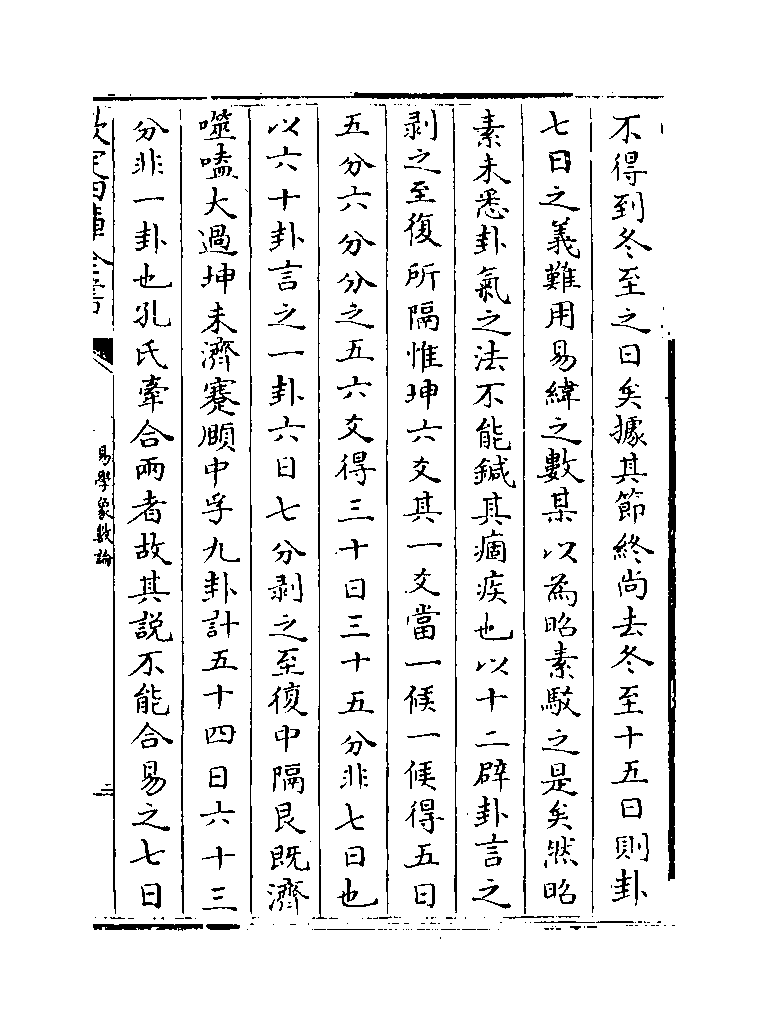 不得到冬至之日矣據其節終尚去冬至十五日則卦
七日之義難用易緯之數某以為昭素駁之是矣然昭
素未悉卦氣之法不能鍼其痼疾也以十二辟卦言之
剥之至復所隔惟坤六爻其一爻當一候一候得五日
五分六分分之五六爻得三十日三十五分非七日也
以六十卦言之一卦六日七分剥之至復中隔艮既濟
噬嗑大過坤未濟蹇頤中孚九卦計五十四日六十三
分非一卦也孔氏牽合兩者故其説不能合易之七日
欽定四庫全書
易學象數論
二